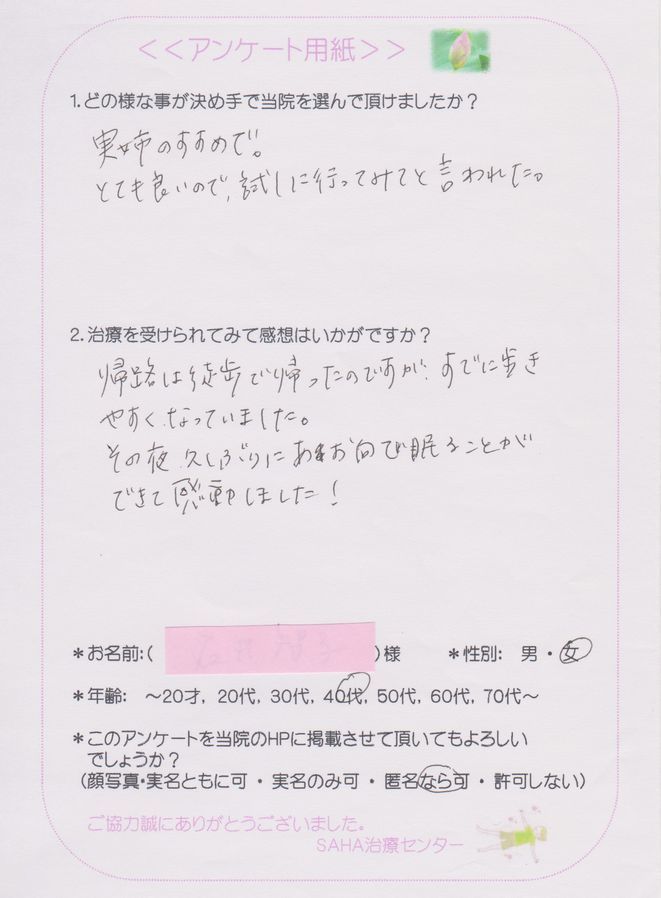 <<アンケート用紙>>
1.どの様な事が決め手で当院を選んで頂けましたか？
実姉のすすめで。
とても良いので、試しに行ってみてと言われた。
2.治療を受けられてみて感想はいかがですか？
帰路は徒歩で帰ったのですが、すでに歩き
やすくなっていました。
その夜 久しぶりにあお向で眠ることが
できて感動しました！
*お名前:( )様 *性別: 男・女
*年齢: ～20才, 20代, 30代, 40代, 50代, 60代, 70代～
*このアンケートを当院のHPに掲載させて頂いてもよろしい
でしょうか？
(顔写真・実名ともに可 ・ 実名のみ可 ・ 匿名なら可 ・ 許可しない)
ご協力誠にありがとうございました。
SAHA治療センター